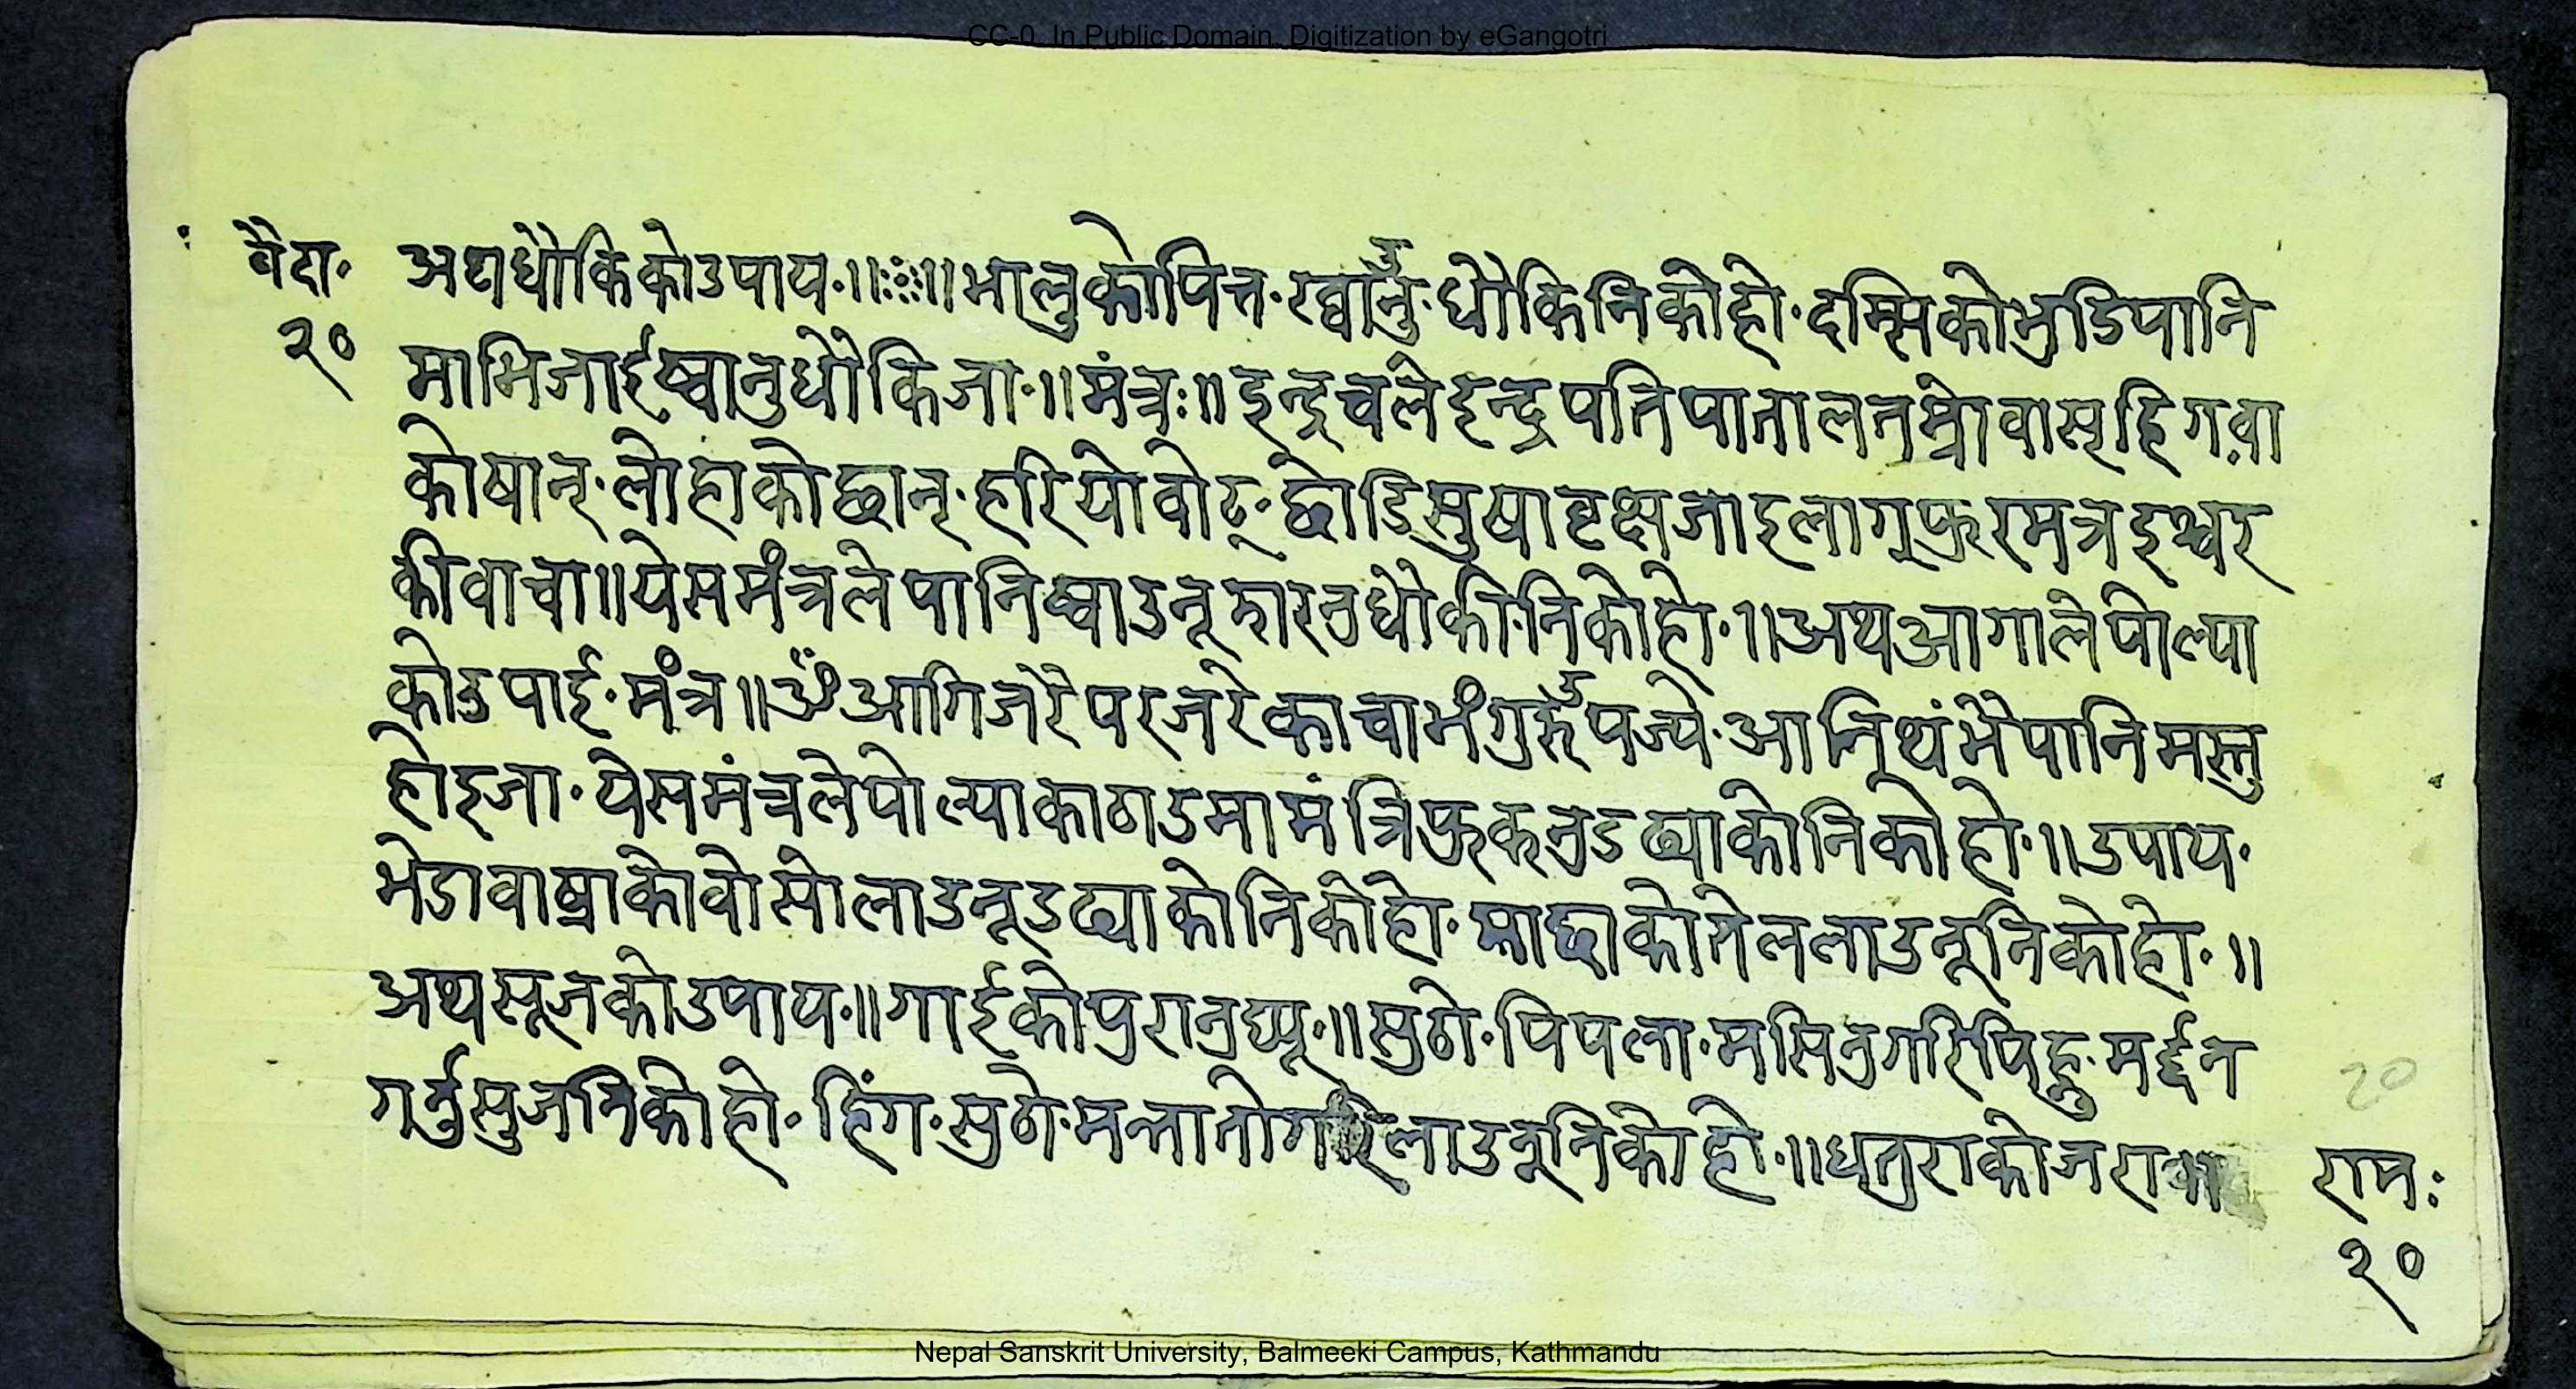 CC-0. In Public Domain. Digitization by eGangotri
वैदा· अथधौकिकोउपाय·॥ः॥भालुकोपित्त·ख्वाँनु·धौकिनिकोहो·दम्सिकोभुडिपानि
२० माभिजाईष्वानुधौकिजा·॥मंत्रः॥इन्द्रचलेइन्द्रपतिपातालतम्रो
कोषान्·लोहाकोछान्·हरियोवोट्·छोडिसुषावृक्षजाइलागूफुरमत्रइश्वर
कीवाचा॥येसमंत्रलेपानिष्वाउनूझारनुधौकी·निकोहो·॥अथआगालेपोल्या
कोउपाई·मंत्र॥ॐआगिजरैपरजरे
होइजा·येसमंत्रलेपोल्याकाठाउमामंत्रिफुकनुडढ्याकोनिकोहो·॥उपाय·
भेडावाष्राकोवोसोलाउनूडढ्याकोनिकोहो·माछाकोतेललाउनूनिकोहो·॥
अथसूजकोउपाय·॥गाईकोपुरानुघ्यू·॥सुठो·पिपला·मसिनुगरिपिहु·मर्द्दन
गर्नुसुजनिकोहो·हिंग·सुठो·मन्तातोगरिलाउनूनिकोहो·॥धतुराकोजरा
20
रामः
२०
Nepal Sanskrit University, Balmeeki Campus, Kathmandu